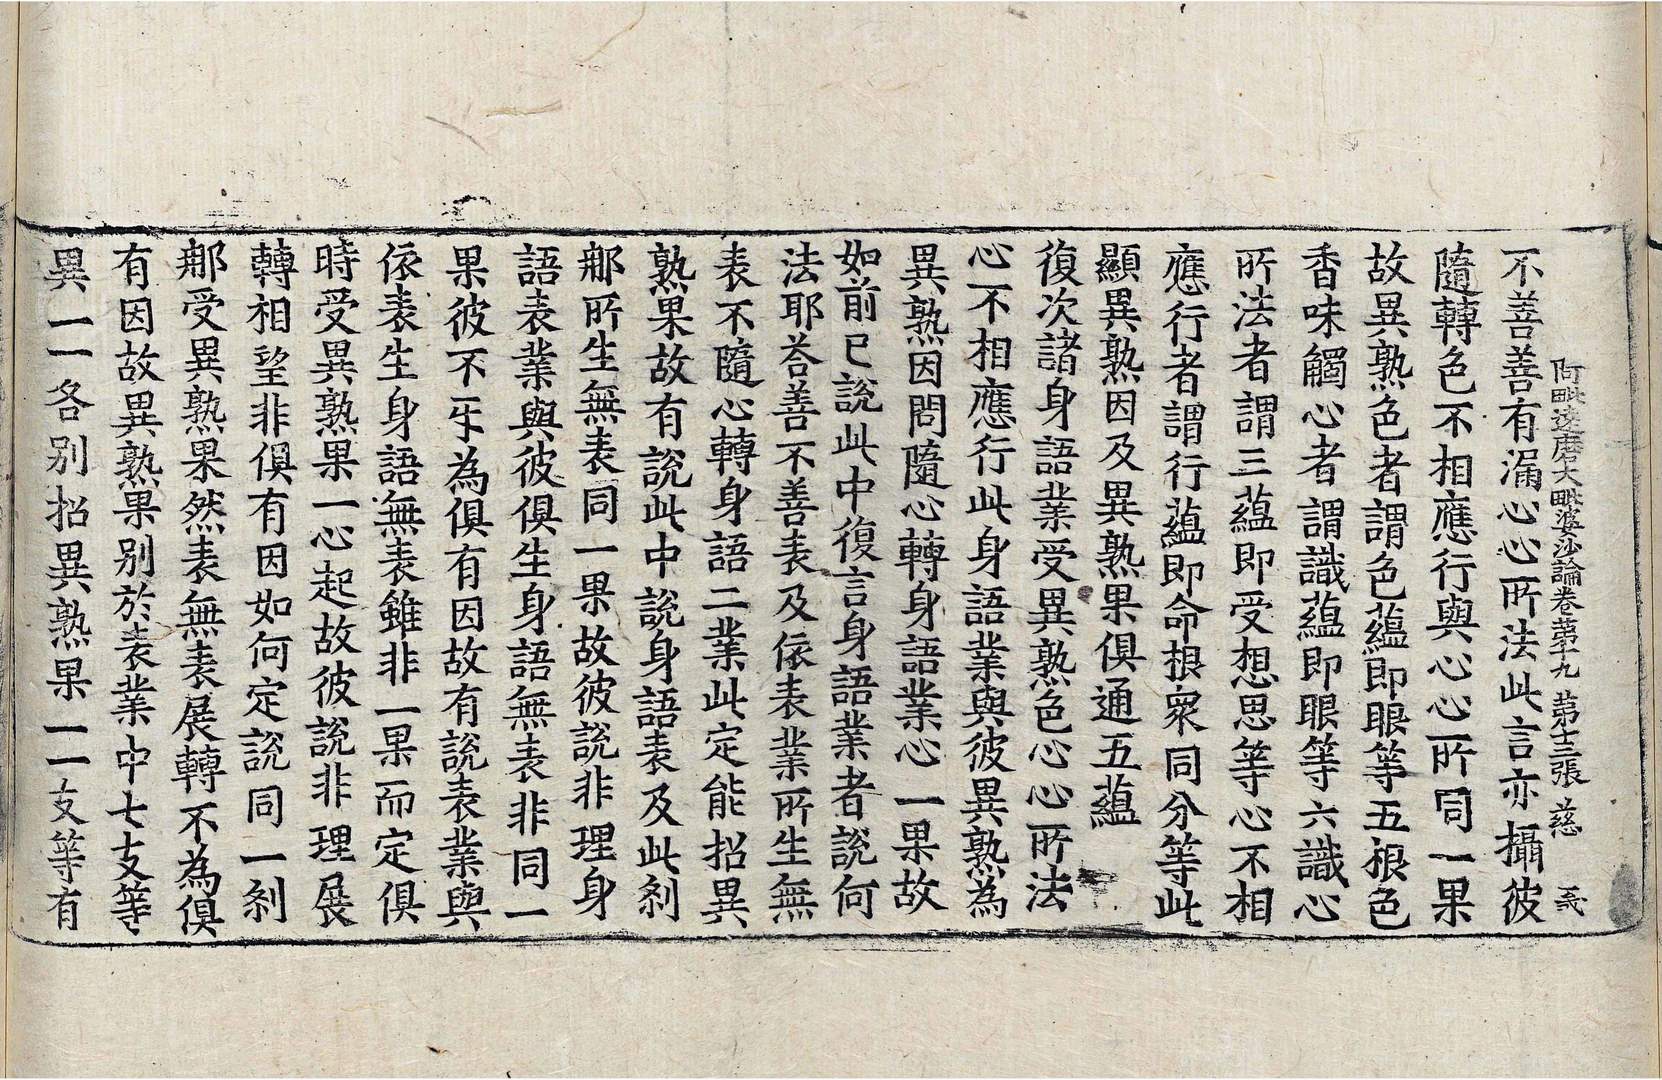 阿毗達磨大毗婆沙論卷第十九 第十三張 慈
不善善有漏心心所法此言亦攝彼
隨轉色不相應行與心心所同一果
故異熟色者謂色蘊即眼等五根色
香味觸心者謂識蘊即眼等六識心
所法者謂三蘊即受想思等心不相
應行者謂行蘊即命根衆同分等此
顯異熟因及異熟果俱通五蘊
復次諸身語業受異熟色心心所法
心不相應行此身語業與彼異熟為
異熟因問隨心轉身語業心一果故
如前已說此中復言身語業者說何
法耶荅善不善表及依表業所生無
表不隨心轉身語二業此定能招異
熟果故有說此中說身語表及此剎
那所生無表同一果故彼說非理身
語表業與彼俱生身語無表非同一
果彼不㸦為俱有因故有說表業與
依表生身語無表雖非一果而定俱
時受異熟果一心起故彼說非理展
轉相望非俱有因如何定說同一剎
那受異熟果然表無表展轉不為俱
有因故異熟果別於表業中七支等
異一一各別招異熟果一一支等有